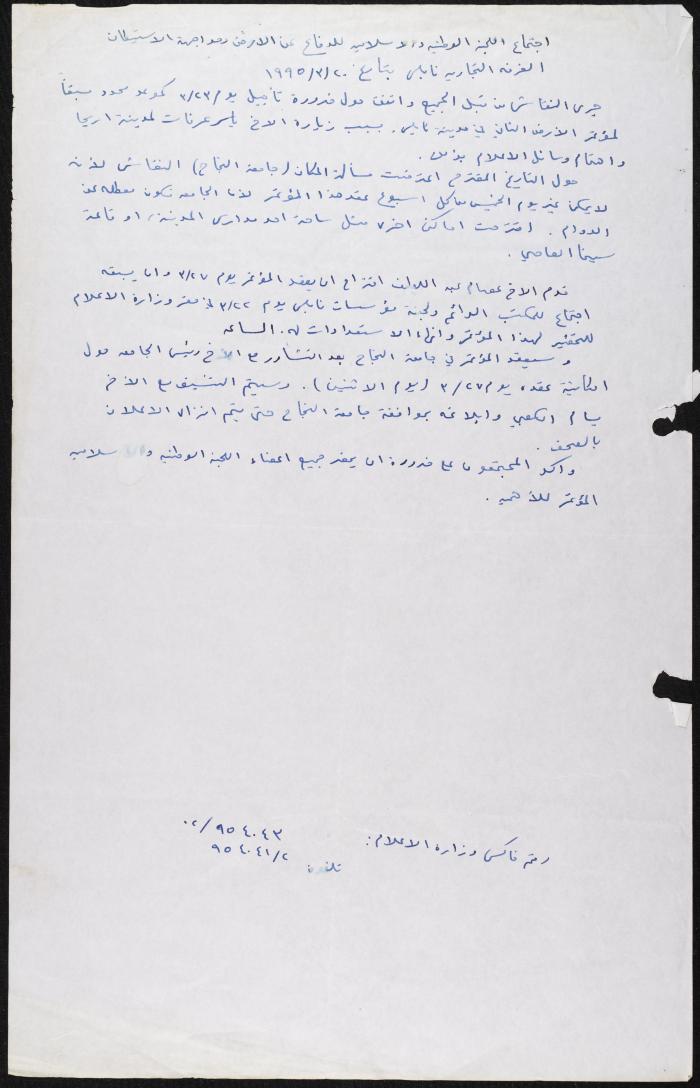 اجتماع اللجنة الوطنيه والاسلاميه للدفاع عن الارض ومواجهة الاستيطان
الغرفه التجاريه نابلس بتاريخ ١٩٩٥/٣/٢٠
جرى النقاش من قبل الجميع واتفق حول ضرورة تأجيل يوم ٣/٢٣ كموعد محدد مسبقاً
لمؤتمر الأرض الثاني في مدينة نابلس. بسبب زيارة الاخ ياسر عرفات لمدينة اريحا
واهتمام وسائل الاعلام بذلك.
حول التاريخ المقترح اعترضت مسألة المكان (جامعة النجاح) النقاش لأنه
لا يمكن غير يوم الخميس من كل اسبوع عقد هذا المؤتمر لأن الجامعه تكون معطله عن
الدوام. اقترحت اماكن اخرى مثل ساحة احد مدارس المدينة، او قاعة
سينما العاصي.
قدم الاخ عصام عبد اللطيف اقتراح ان يعقد المؤتمر يوم ٣/٢٧ وان يسبقه
اجتماع للمكتب الدائم ولجنة مؤسسات نابلس يوم ٣/٢٢ في مقر وزارة الاعلام
للتحضير لهذا المؤتمر وانهاء الاستعدادات له. الساعه
وسيعقد المؤتمر في جامعة النجاح بعد التشاور مع الأخ رئيس الجامعه حول
امكانية عقده يوم ٣/٢٧ (يوم الاثنين). وسيتم التنسيق مع الأخ
بسام الكعبي وابلاغه بموافقة جامعة النجاح حتى يتم انزال الاعلان
بالصحف.
واكد المجتمعون على ضرورة ان يحضر جميع اعضاء اللجنة الوطنيه والاسلاميه
المؤتمر للأهميه.
رقم فاكس وزارة الاعلام: ٠٢/٩٥٤٠٤٣
تلفون: ٩٥٤٠٤١/٢